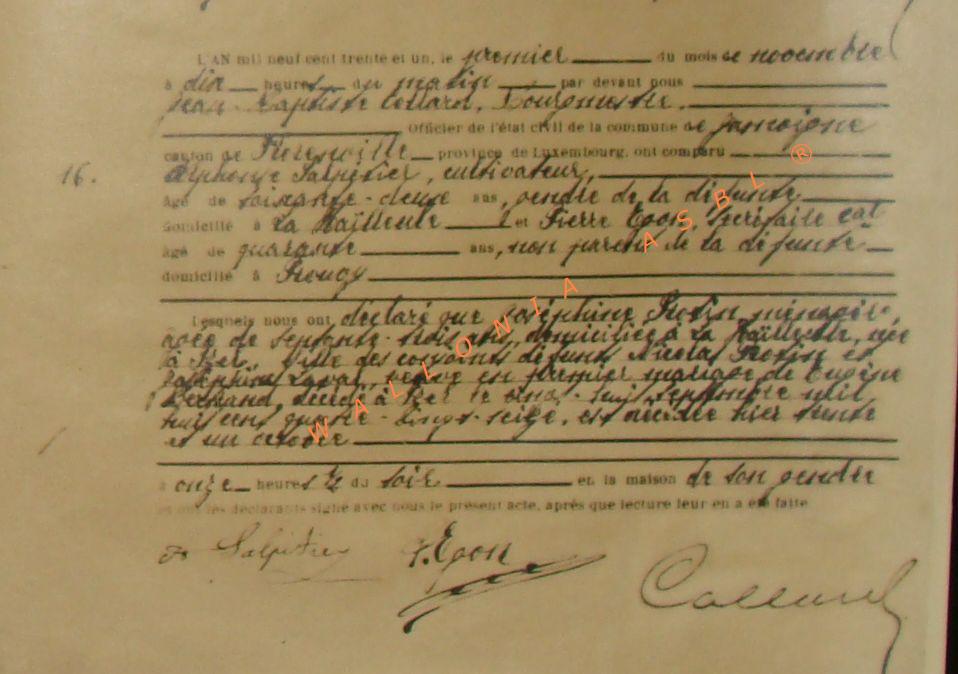 L'AN mil neuf cent trente et un, le premier du mois de novembre
à dix heures du matin par devant nous
Jean-Baptiste Collard, Bourgmestre,
Officier de l'état civil de la commune de Jamoigne
canton de Florenville province de Luxembourg, ont comparu
16. Alphonse Salpétier, cultivateur,
âgé de soixante-deux ans, gendre de la défunte
domicilié à La Haïlleule et Pierre Egon, secrétaire cal
âgé de quarante ans, non parent de la défunte
domicilié à Prouvy
Lesquels nous ont déclaré que Joséphine Rodin, ménagère,
âgée de septante-trois ans, domiciliée à La Haïlleule, née
à Izel, fille des conjoints défunts Nicolas Rodin et
Joséphine Laval, veuve en premier mariage de Eugène
décédé à Izel le vingt-six septembre mil
huit cent quatre-vingt-seize, est décédée hier trente
et un octobre
à onze heures ½ du soir en la maison de son gendre
et ont les déclarants signé avec nous le présent acte, après que lecture leur en a été faite
A Salpétier P. Egon
Collard
WALLONIA ASBL ®